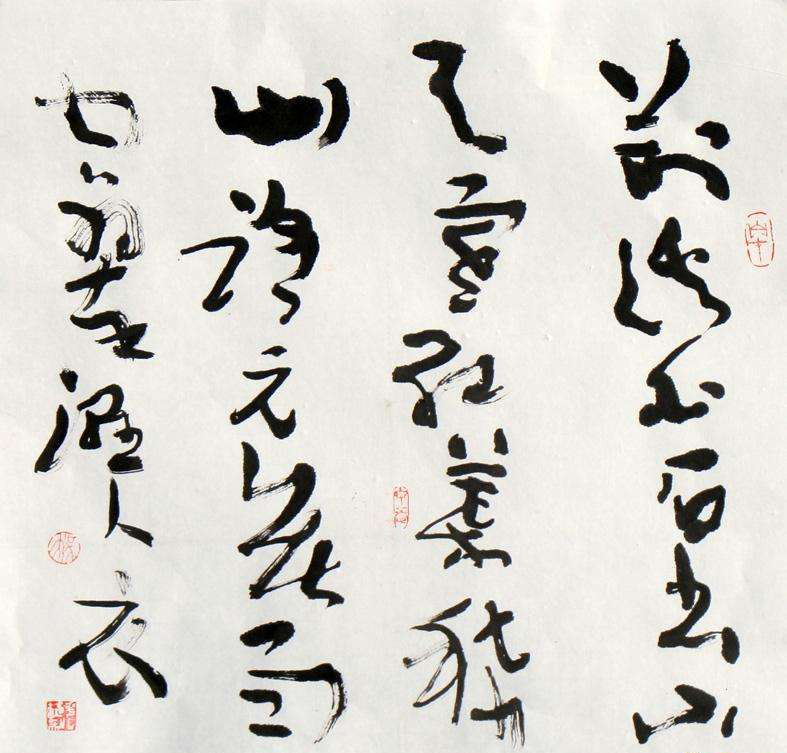 荆溪石出
天寒红葉稀
山路元無雨
空翠濕人衣